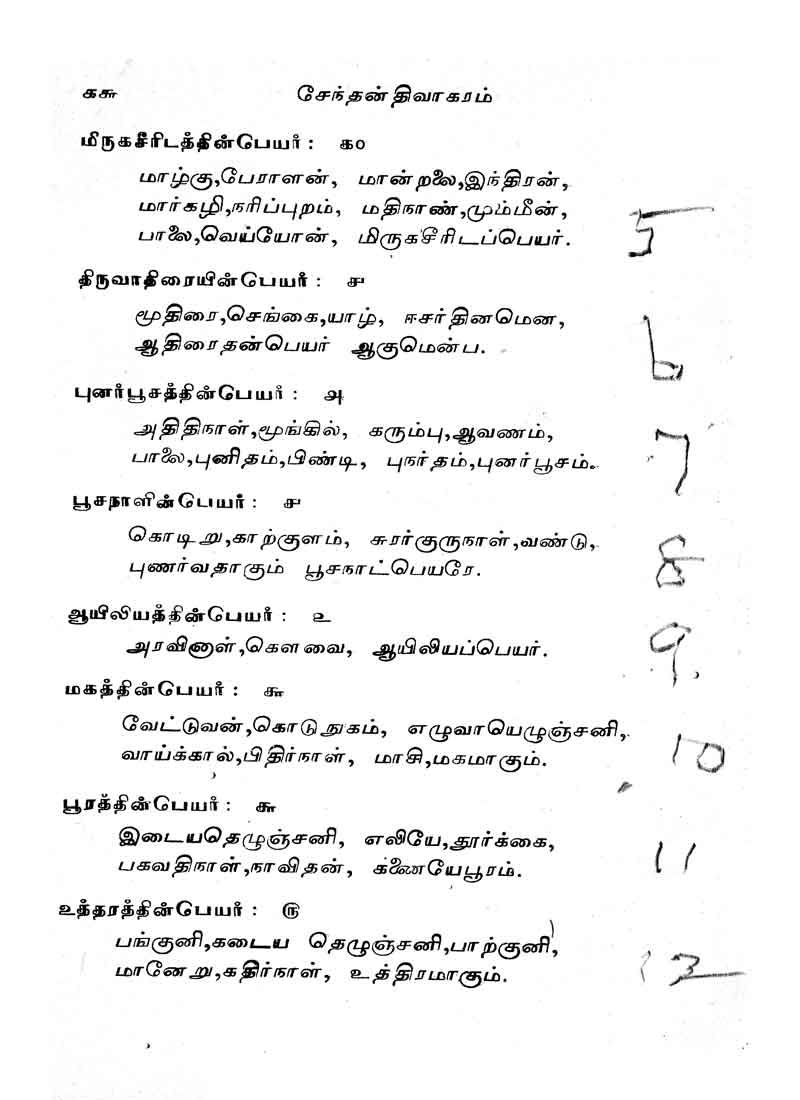 ௧௬ சேந்தன் திவாகரம்
மிருகசீரிடத்தின்பெயர் : ௧௦
மாழ்கு,பேராளன், மான்றலை,இந்திரன்,
மார்கழி,நரிப்புறம், மதிநாண்,மும்மீன்,
பாலை,வெய்யோன், மிருகசீரிடப்பெயர்.
5
திருவாதிரையின்பெயர் : ௪
மூதிரை,செங்கை,யாழ், ஈசர்தினமென,
ஆதிரைதன்பெயர் ஆகுமென்ப.
6
புனர்பூசத்தின்பெயர் : ௮
அதிதிநாள்,மூங்கில், கரும்பு,ஆவணம்,
பாலை,புனிதம்,பிண்டி, புநர்தம்,புனர்பூசம்.
7
பூசநாளின்பெயர் : ௪
கொடிறு,காற்குளம், சுரர்குருநாள்,வண்டு,
புணர்வதாகும் பூசநாட்பெயரே.
8
ஆயிலியத்தின்பெயர் : ௨
அரவினாள்,கௌவை, ஆயிலியப்பெயர்.
9
மகத்தின்பெயர் : ௬
வேட்டுவன்,கொடுநுகம், எழுவாயெழுஞ்சனி,
வாய்க்கால்,பிதிர்நாள், மாசி,மகமாகும்.
10
பூரத்தின்பெயர் : ௬
இடையதெழுஞ்சனி, எலியே,தூர்க்கை,
பகவதிநாள்,நாவிதன், கணையேபூரம்.
11
உத்தரத்தின்பெயர் : ௫
பங்குனி,கடைய தெழுஞ்சனி,பாற்குனி,
மானேறு,கதிர்நாள், உத்திரமாகும்.
12